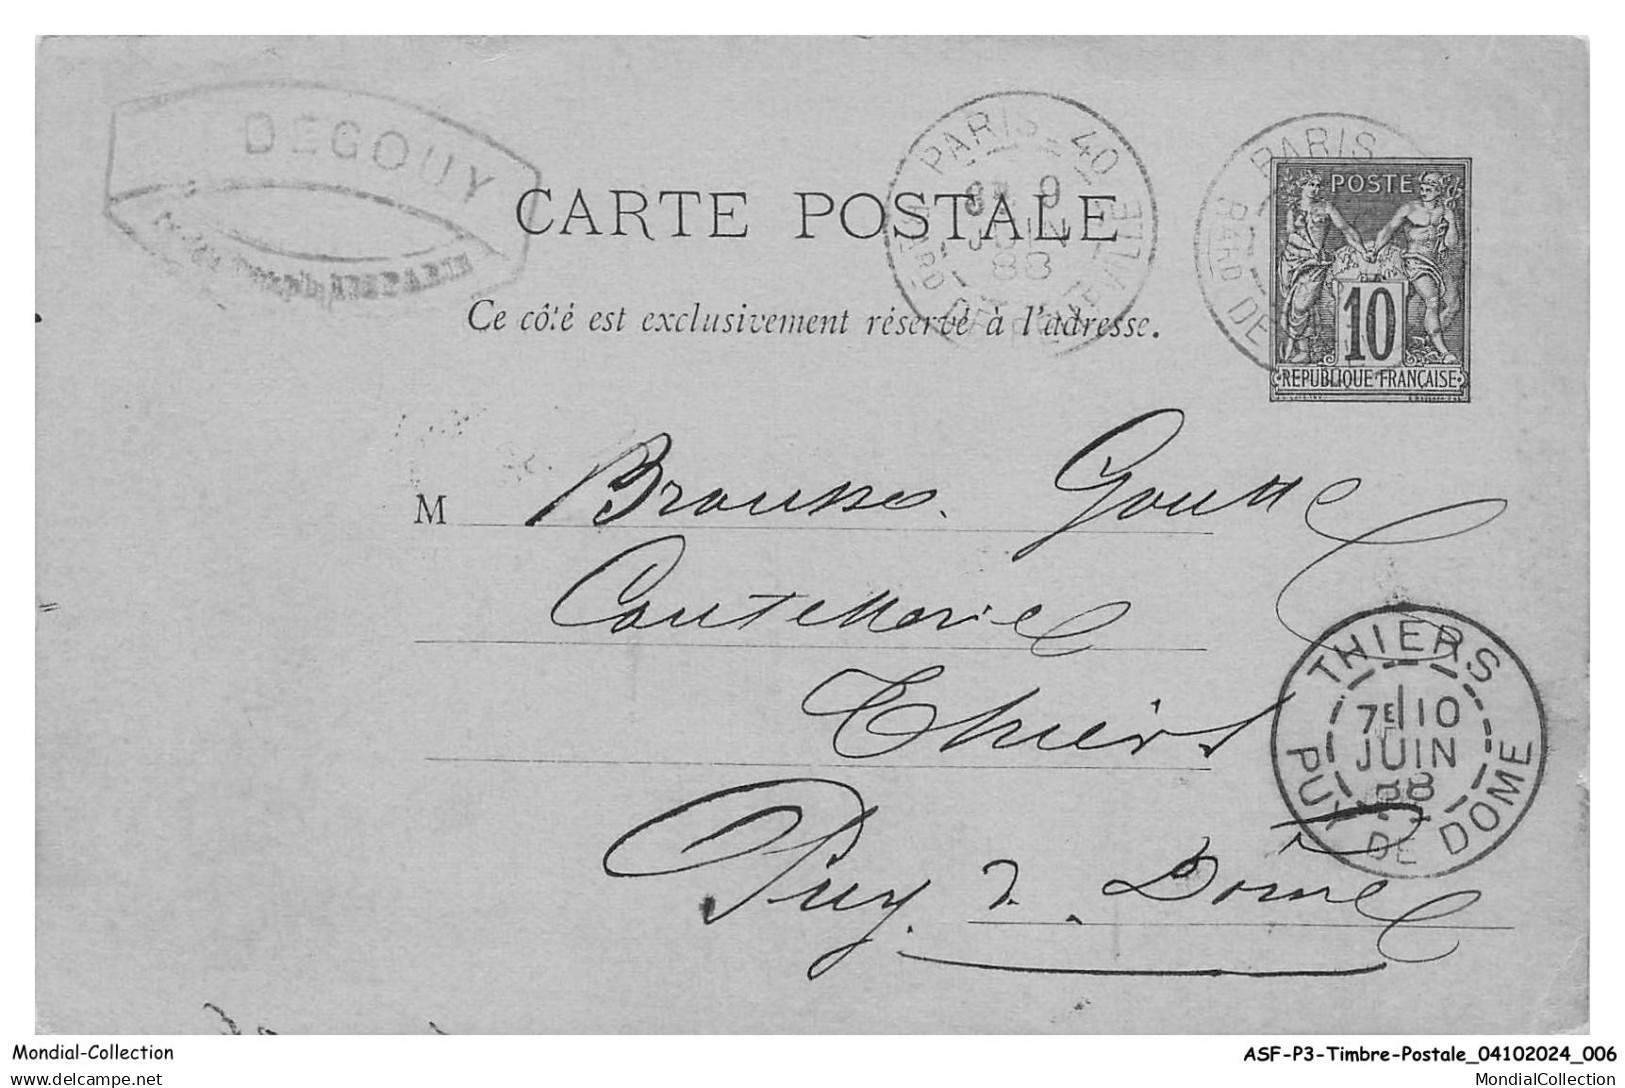 DEGOUY
PARIS
CARTE POSTALE
Ce côté est exclusivement réservé à l'adresse.
PARIS 40
9
JUIN
88
PARIS
BARD DE
POSTE
10
REPUBLIQUE FRANÇAISE
M Brousse Goutte
Coutellerie
Thiers
Puy. d. Dôme
THIERS
7E 10
JUIN
88
PUY DE DOME
Mondial-Collection
ASF-P3-Timbre-Postale_04102024_006
delcampe.net
MondialCollection